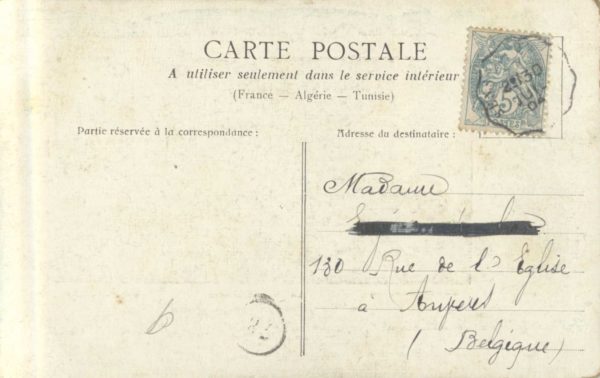 CARTE POSTALE
A utiliser seulement dans le service intérieur
(France — Algérie — Tunisie)
Partie réservée à la correspondance :
Adresse du destinataire :
Madame
130 Rue de l'Eglise
à Anvers
(Belgique)